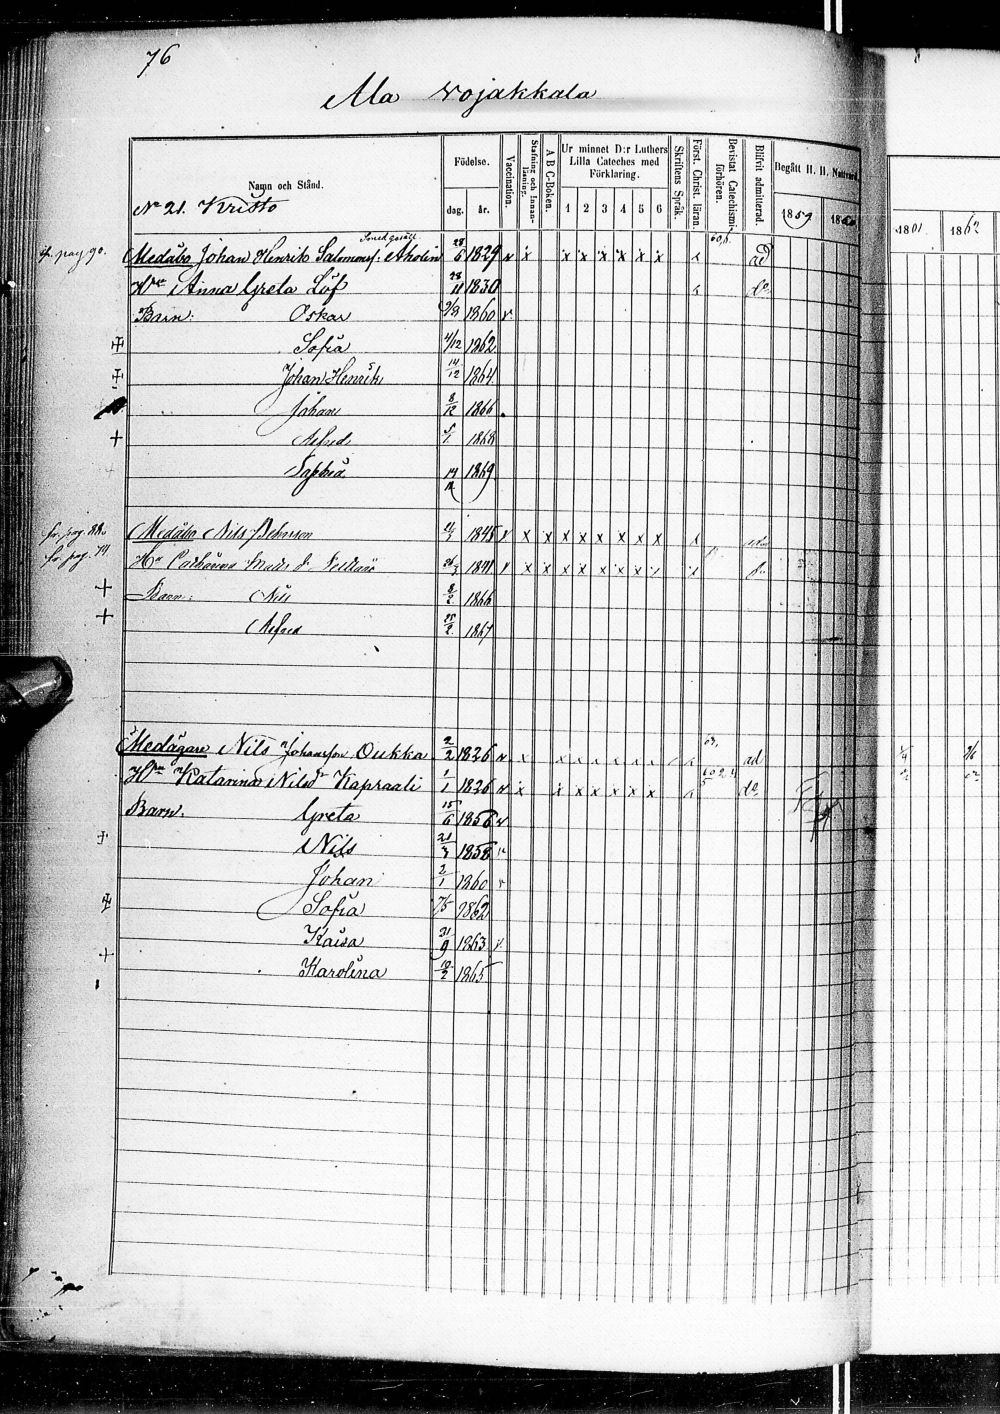 76
Ala vojakkala
Namn och Stånd.
Födelse.
dag. år.
Vaccination.
Stafning och Innanläsning.
A B C-Boken.
Ur minnet D:r Luthers Lilla Cateches med Förklaring.
1 2 3 4 5 6
Skriftens Språk.
Först. Christ. läran.
Bevistat Catechismi förhören.
Blifvit admitterad.
Begått H. H. Nattvard
1859 1860
1861 1862
No 21. Kristo
Smedgesäll
pag 90. Medåbo Johan Henrik Salomonsf: Aholin 28/6 1829 v x x x x x x x x ad
Hru Anna Greta Löf 28/11 1830 do
Barn: Oskar 9/8 1860 v
Sofia 4/12 1862
Johan Henrik 14/12 1864
Johan 8/12 1866
Alfred 1868
14/12 1869
fr. pag. 88. Medåbo Nils 1845 v x x x x x x x x x
fr. pag. 74 Hu Catharina Mats d. 1841 v x x x x x x x x x
Barn: Nils 8/2 1866
Alfred 25/2 1867
Medägare Nils Johansson Oukka 2/2 1826 v x x x x x x x ad
Hru Katarina Nilsdr Kapraali 1/1 1826 v x x x x x x x do
Barn: Greta 15/6 1856 v
Nils 21/3 1858 v
Johan 2/1 1860 v
Sofia 7/5 1862
Kaisa 21/9 1863 v
Karolina 10/2 1865